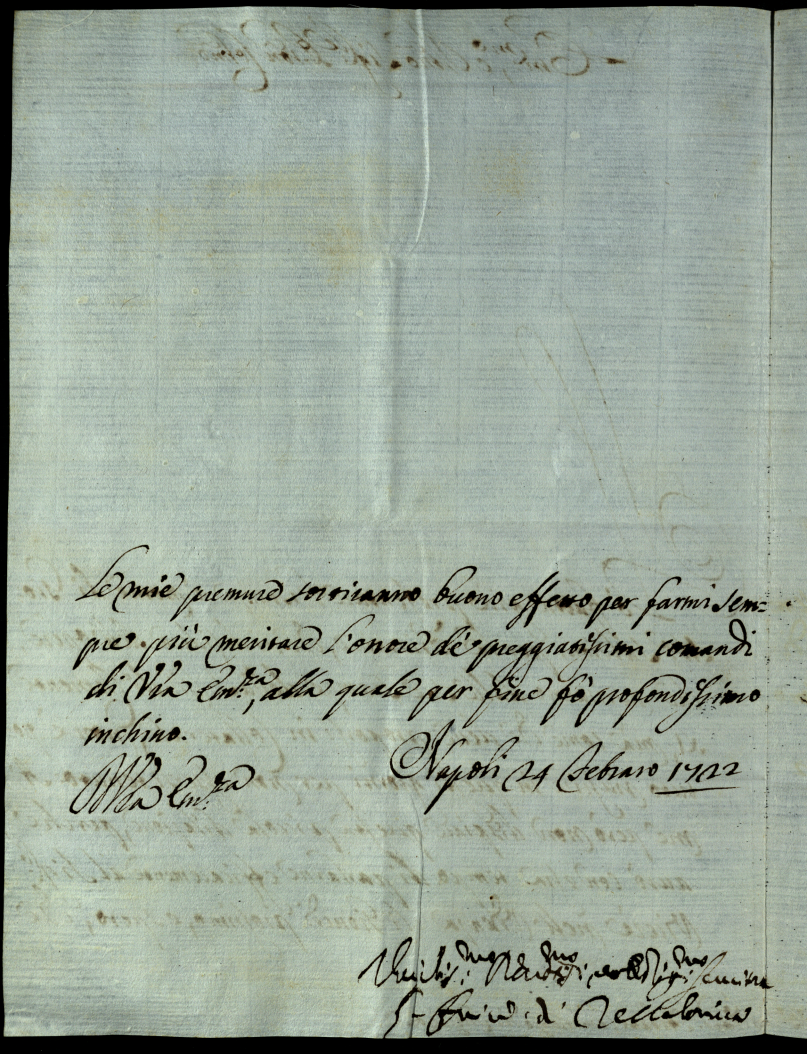 Le mie premure sortiranno buono effetto per farmi sem=
pre più meritare l'onore de' preggiatissimi comandi
di Vra Em.za, alla quale per fine fò profondissimo
inchino.
Napoli 24 Febraro 1722
Di Vra Em.za
Umilis.mo Devot.mo ed Obligatis.mo
di